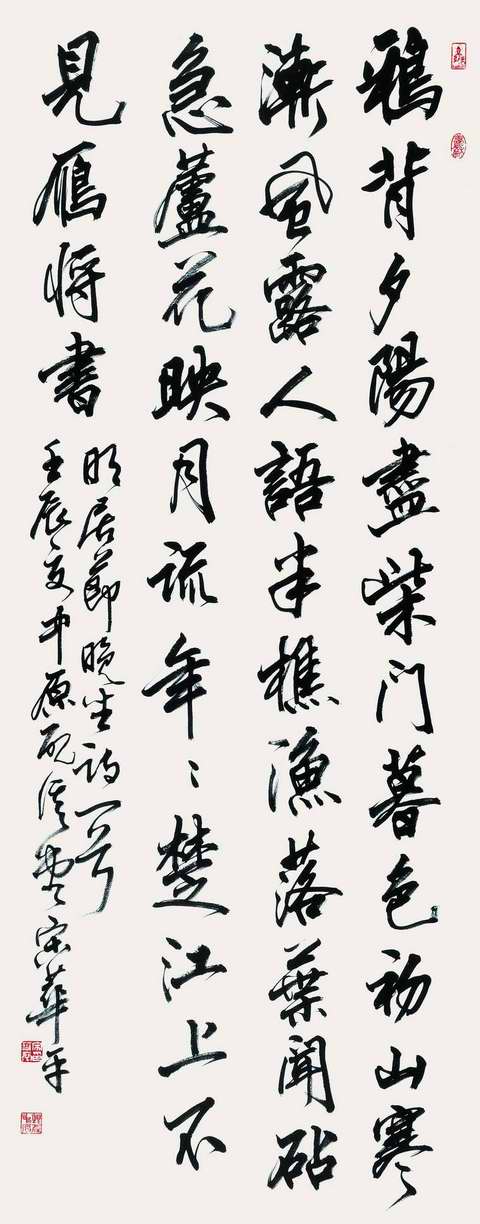 鴉背夕陽盡柴門暮色初山寒
漸風露人語半樵漁落葉聞砧
急蘆花映月疏年〻楚江上不
見鴈將書
明居節晚坐詩一首
壬辰夏中原 宋華平